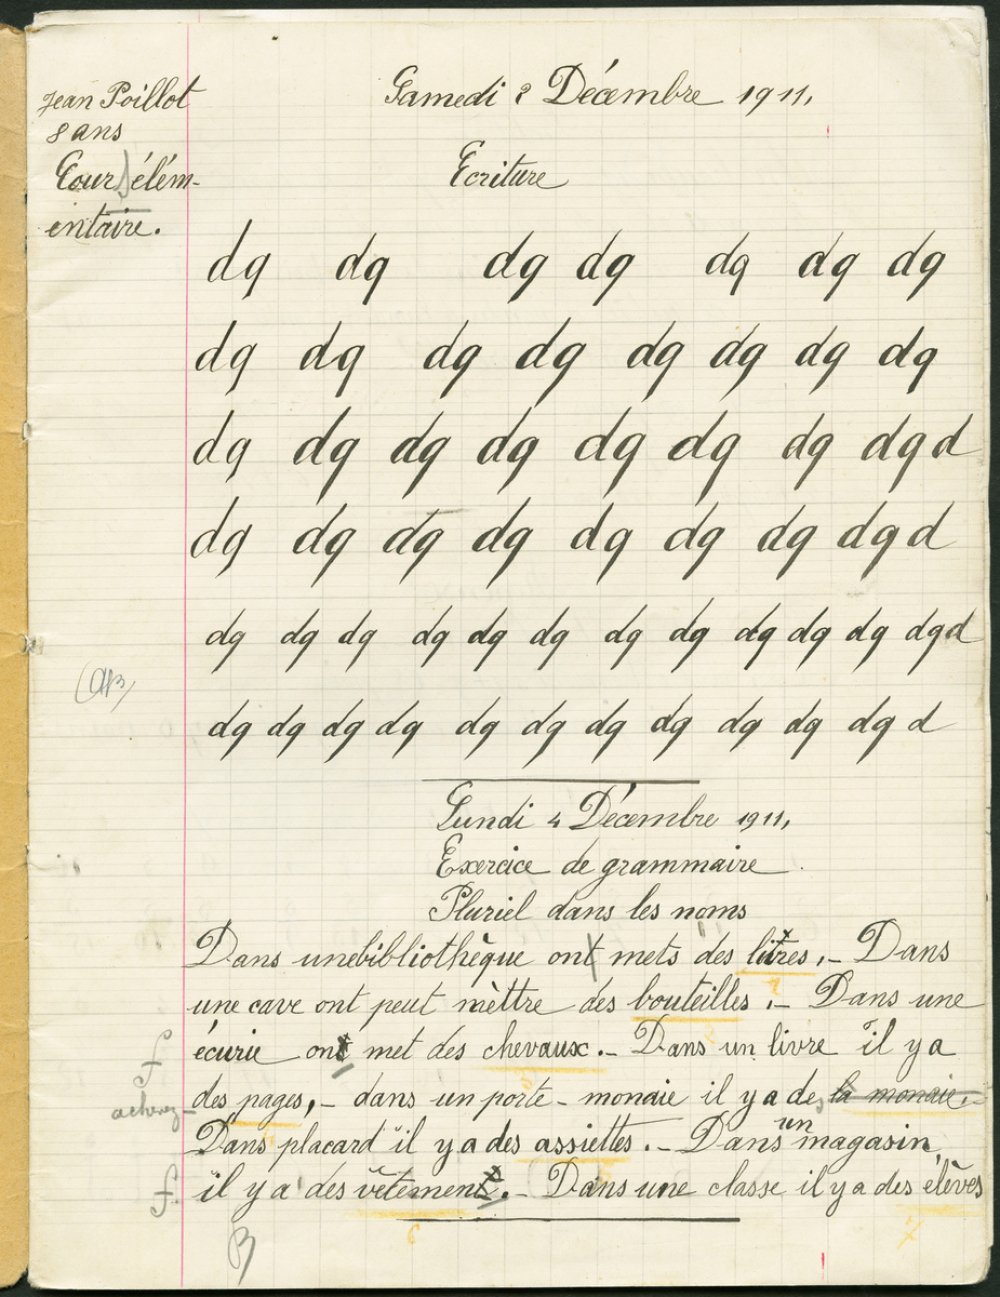 Jean Poillot
8 ans
Cours élém-
entaire.
Samedi 2 Décembre 1911,
Ecriture
dq dq dq dq dq dq dq
dq dq dq dq dq dq dq dq
dq dq dq dq dq dq dq dq d
dq dq dq dq dq dq dq dq d
dq dq dq dq dq dq dq dq dq dq dq dq d
dq dq dq dq dq dq dq dq dq dq dq d
Lundi 4 Décembre 1911,
Exercice de grammaire
Pluriel dans les noms
Dans unebibliothèque ont mets des litres. - Dans
une cave ont peut mèttre des bouteilles. - Dans une
écurie ont met des chevaux. - Dans un livre il y a
achevez
des pages, - dans un porte - monaie il y a de la monaie.
Dans placard il y a des assiettes. - Dans un magasin
il y a des vêtements. - Dans une classe il y a des élèves
B